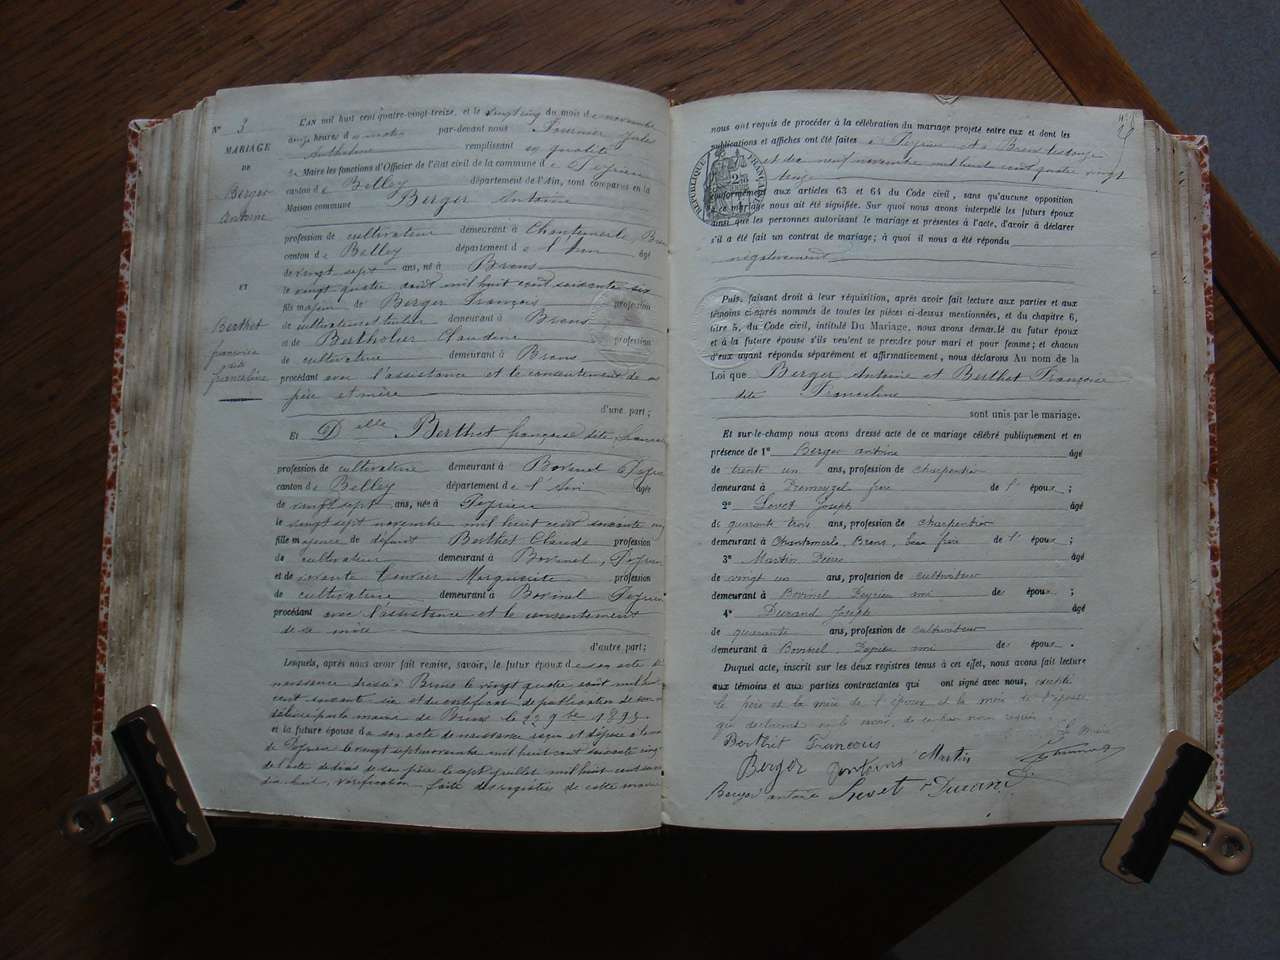 N° 3
MARIAGE
DE
Berger
Antoine
ET
Berthet
françoise
dite
francéline
L'AN mil huit cent quatre-vingt-treize, et le vingt cinq du mois de novembre
heures du matin par-devant nous Fournier Jule
Anthelme remplissant en qualité
de Maire les fonctions d'Officier de l'état civil de la commune de Peyrieu
canton de Belley département de l'Ain, sont comparus en la
Maison commune Berger Antoine
profession de cultivateur demeurant à Chantemerle, Brens
canton de Belley département de l'Ain âgé
de vingt sept ans, né à Brens
le vingt quatre août mil huit cent soixante six
fils majeur de Berger François profession
de cultivateur demeurant à Brens
et de Bertholier Claudine profession
de cultivatrice demeurant à Brens
procédant avec l'assistance et le consentement de ses
père et mère
d'une part;
Et Delle Berthet françoise dite
profession de cultivatrice demeurant à Bovinel Peyrieu
canton de Belley département de l'Ain âgée
de vingt sept ans, née à Peyrieu
le vingt sept novembre mil huit cent soixante
fille majeure de défunt Berthet Claude profession
de cultivateur demeurant à Bovinel, Peyrieu
et de vivante Marguerite profession
de cultivatrice demeurant à Bovinel Peyrieu
procédant avec l'assistance et le consentement
de sa mère
d'autre part;
Lesquels, après nous avoir fait remise, savoir, le futur époux de son acte de
naissance dressé à Brens le vingt quatre août mil huit
cent soixante six et du certificat de publication
délivré par la mairie de Brens le 22 9bre 1893
et la future épouse d son acte de naissance reçu et déposé à la mairie
de Peyrieu le vingt sept novembre mil huit cent soixante
de l'acte de décès de son père le sept juillet mil huit cent soixante
dix huit, vérification faite des registres de cette mairie
nous ont requis de procéder à la célébration du mariage projeté entre eux et dont les
publications et affiches ont été faites à Peyrieu et à Brens les douze
et dix neuf novembre mil huit cent quatre vingt
treize
RÉPUBLIQUE FRANÇAISE
conformément aux articles 63 et 64 du Code civil, sans qu'aucune opposition
à ce mariage nous ait été signifiée. Sur quoi nous avons interpellé les futurs époux
ainsi que les personnes autorisant le mariage et présentes à l'acte, d'avoir à déclarer
s'il a été fait un contrat de mariage; à quoi il nous a été répondu
négativement
Puis, faisant droit à leur réquisition, après avoir fait lecture aux parties et aux
témoins ci-après nommés de toutes les pièces ci-dessus mentionnées, et du chapitre 6,
titre 5, du Code civil, intitulé Du Mariage, nous avons demandé au futur époux
et à la future épouse s'ils veulent se prendre pour mari et pour femme; et chacun
d'eux ayant répondu séparément et affirmativement, nous déclarons Au nom de la
Loi que Berger Antoine et Berthet Françoise
dite Franceline
sont unis par le mariage.
Et sur-le-champ nous avons dressé acte de ce mariage célébré publiquement et en
présence de 1° Berger antoine âgé
de trente un ans, profession de charpentier
demeurant à frère de l' époux ;
2° Joseph âgé
de quarante trois ans, profession de charpentier
demeurant à Chantemerle, Brens, beau frère de l' époux ;
3° Martin âgé
de vingt un ans, profession de cultivateur
demeurant à Bovinel Peyrieu ami des époux ;
4° Durand Joseph âgé
de quarante ans, profession de cultivateur
demeurant à Bovinel, Peyrieu ami des époux .
Duquel acte, inscrit sur les deux registres tenus à cet effet, nous avons fait lecture
aux témoins et aux parties contractantes qui ont signé avec nous, excepté
le père et la mère de l'époux et la mère de l'épouse
qui déclarent ne le savoir, de ce faire requis
Le Maire
Berthet Francois
Berger Antoine Martin
Berger antoine Durand